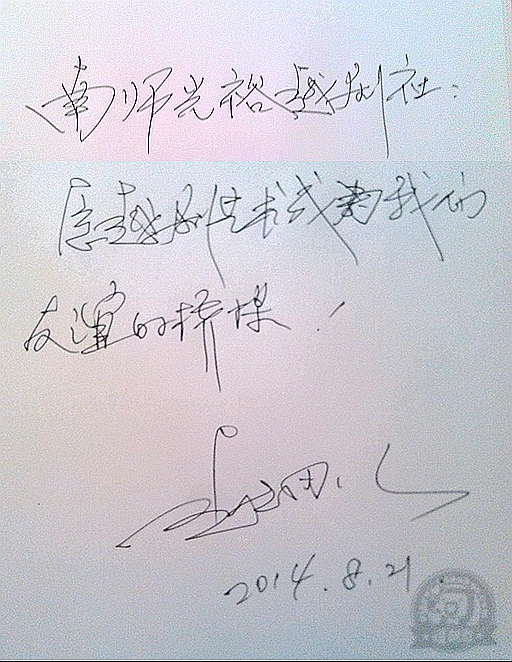 南师光裕越剧社：
愿越剧艺术成为我们
友谊的桥梁！
2014.8.21